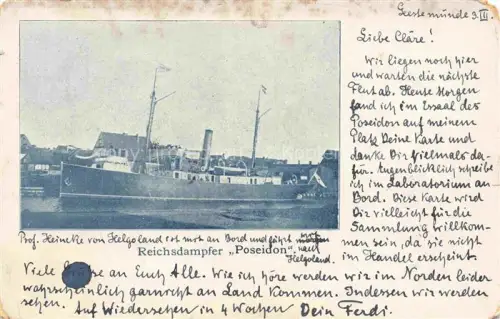 Geestemünde 3. III.
Liebe Cläre!
Wir liegen noch hier
und warten die nächste
Flut ab. Heute Morgen
fand ich im Essaal des
Poseidon auf meinem
Platz Deine Karte und
danke Dir vielmals da-
für. Augenblicklich schreibe
ich im Laboratorium an
Bord. Diese Karte wird
Dir vielleicht für die
Sammlung willkom-
men sein, da sie nicht
im Handel erscheint.
Prof. Heincke von Helgoland ist mit an Bord und fährt mit
nach
Helgoland.
Reichsdampfer „Poseidon".
Viele Grüße an Euch Alle. Wie ich höre werden wir im Norden leider
wahrscheinlich garnicht an Land kommen. Indessen wir werden
sehen. Auf Wiedersehen in 4 Wochen Dein Ferdi.